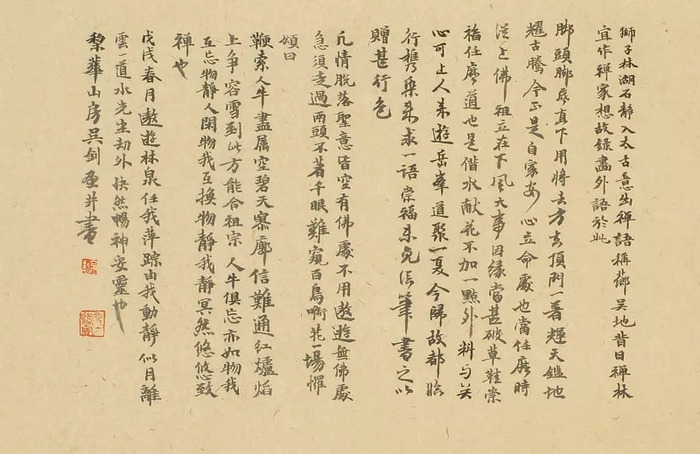 獅子林湖石靜入太古意出禪語稱 吳地昔日禪林
宜作禪家想故錄畫外語於此
脚頭脚底直下用將去方 頂門一著輝天鑑地
耀古騰今正是自家安心立命處也當任麼時
從上佛祖立在下風大事因緣當甚破草鞋崇
福任麼道也是借水献花不加一點外料与关
心可上人来遊岳峯道聚一夏今歸故都临
行携 来求一語崇福未免信筆書之以
贈甚行色
凡情脫落聖意皆空有佛處不用遨遊無佛處
急須走過兩頭不著千眼難窺百鳥啣花一場懼
頌曰
鞭索人牛盡屬空碧天寥廓信難通紅爐焰
上争容雪到此方能合祖宗 人牛俱忘亦如物我
互忘物靜人閑物我互換物靜我靜冥然悠悠致
禪也
戊戌春月遨遊林泉任我萍踪由我動靜似月離
雲一道水光生劫外 快然暢神安靈也
黎華山房吳劍 并書